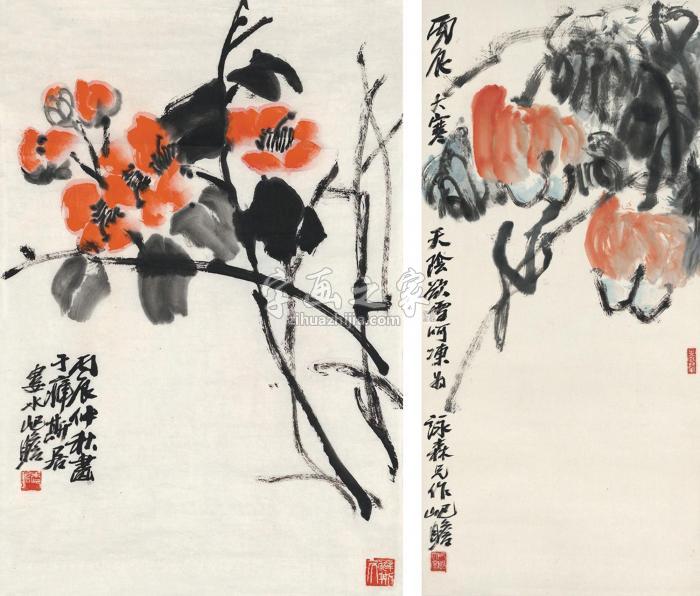 丙辰仲秋画
于痹斯居
娄水屺瞻
丙辰大寒天阴欲雪呵冻为詠森兄作屺瞻
字画之家
zihuazhijia.com